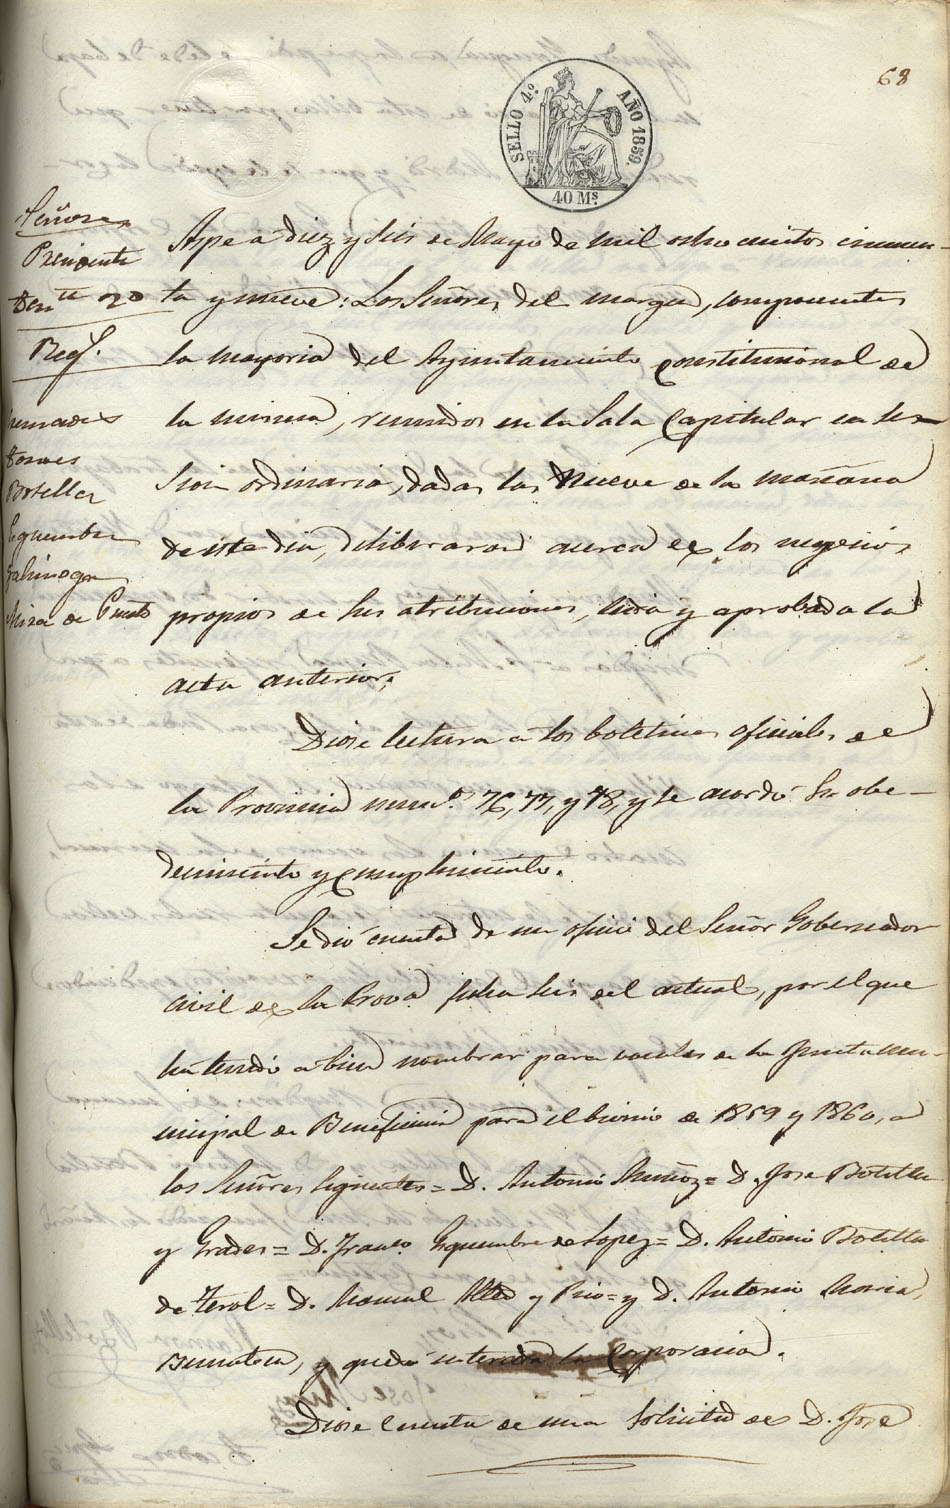 68
SELLO 4.º AÑO 1859.
40 Ms.
Señores
Presidente
Tente 2º
Regs.
Cremades
Tornes
Botella
Esquembre
Mira de Puerto
Aspe a diez y seis de Mayo de mil ochocientos cincuen-
ta y nueve: Los Señores del margen, componentes
la mayoria del Ayuntamiento constitucional de
la misma, reunidos en la Sala Capitular en se-
sion ordinaria, dadas las nueve de la mañana
de este dia, deliberaron acerca de los negocios
propios de sus atribuciones, leida y aprobada la
acta anterior.
Diose lectura a los boletines oficiales de
la Provincia numos. 76, 77, y 78, y se acordó su obe-
decimiento y cumplimiento.
Se dió cuenta de un oficio del Señor Gobernador
civil de la Prova fecha seis del actual, por el que
ha tenido a bien nombrar para vocales de la Junta mu-
nicipal de Beneficencia para el bienio de 1859 y 1860, a
los Señores siguientes = D. Antonio Muñoz = D. Jose Botella
y Grades = D. Franco. Esquembre de Lopez = D. Antonio Botella
de Terol = D. Manuel Alted y Pico = y D. Antonio Maria
y quedó enterada la Corporacion.
Diose cuenta de una solicitud de D. Jose